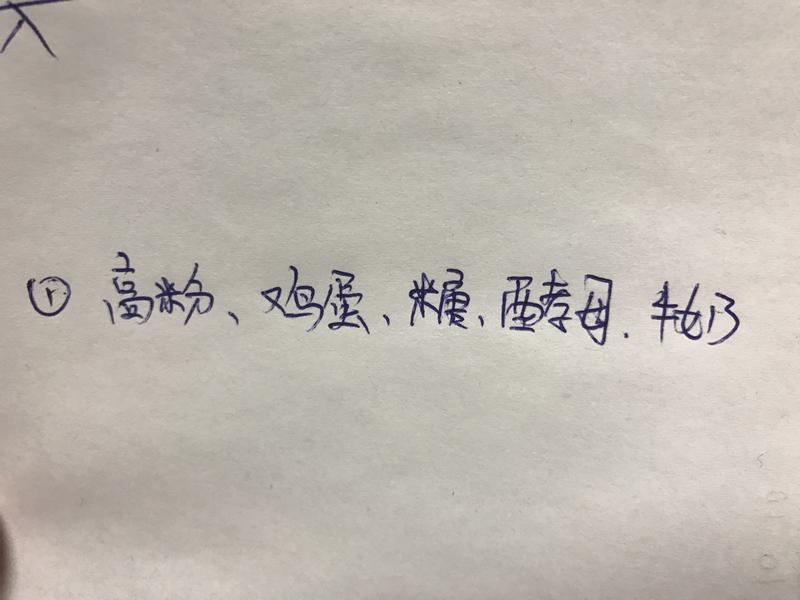 ① 高粉、鸡蛋、糖、酵母、牛奶